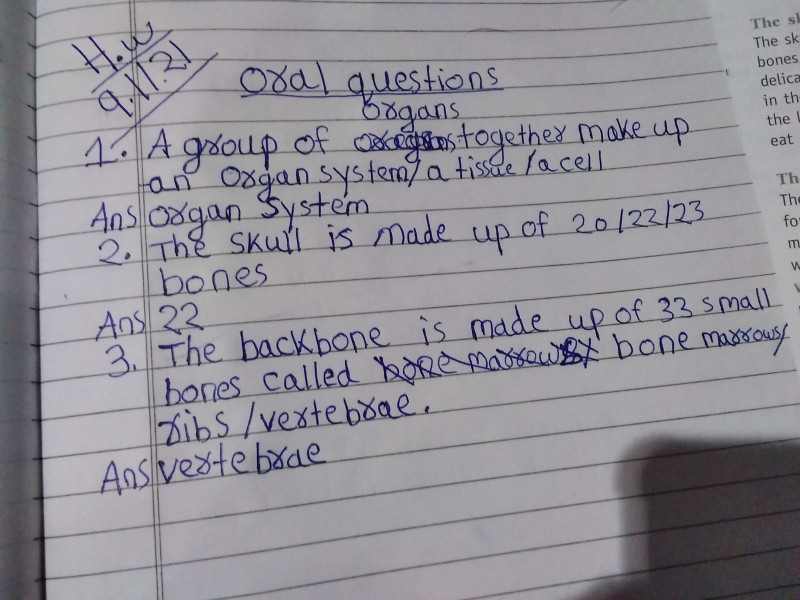 H.w
9.1.21
Oral questions
organs
1. A group of together make up
an organ system/a tissue/a cell
Ans organ system
2. The skull is made up of 20/22/23
bones
Ans 22
3. The backbone is made up of 33 small
bones called bone marrows/
ribs/vertebrae.
Ans vertebrae
The sk
bones
delica
in th
the l
eat
Th
The
fo
m
w